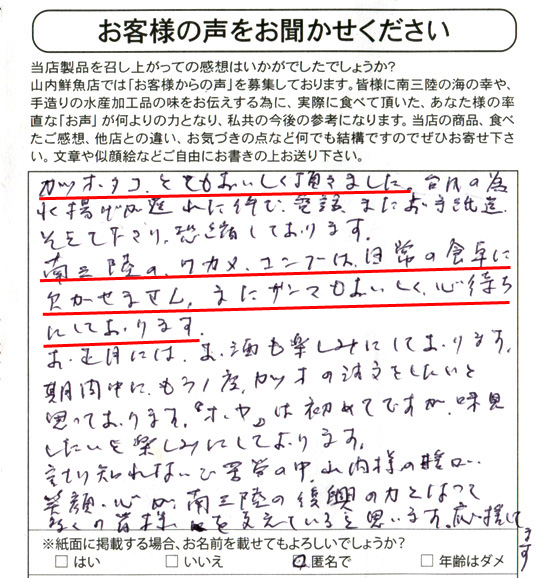 お客様の声をお聞かせください
当店製品を召し上がっての感想はいかがでしたでしょうか?
山内鮮魚店では「お客様からの声」を募集しております。皆様に南三陸の海の幸や、
手造りの水産加工品の味をお伝えする為に、実際に食べて頂いた、あなた様の率
直な「お声」が何よりの力となり、私共の今後の参考になります。当店の商品、食べ
たご感想、他店との違い、お気づきの点など何でも結構ですのでぜひお寄せ下さ
い。文章や似顔絵などご自由にお書きの上お送り下さい。
カツオ、タコ、とてもおいしく頂きました。台風の為
水揚げが遅れに伴い、電話、またお手紙迄、
そえて下さり、恐縮しております。
南三陸の、ワカメ、コンブは、日常の食卓に
欠かせません。またサンマもおいしく、心待ち
にしております。
お正月には、お酒も楽しみにしております。
期間中に、もう1度、カツオの注文をしたいと
思っております。『ホヤ』は初めてですが、味見
したいと楽しみにしております。
計り知れないご苦労の中、山内様の
笑顔・心が、南三陸の復興の力となって
多くの皆様を支えていると思います。応援して
ます
※紙面に掲載する場合、お名前を載せてもよろしいでしょうか?
□はい □いいえ □匿名で □年齢はダメ